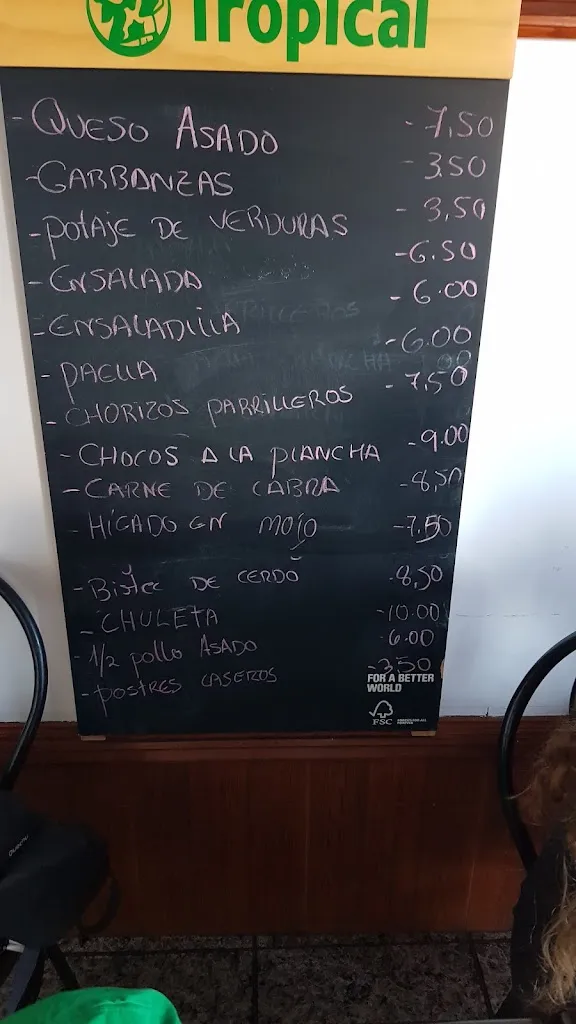 Tropical
- QUESO ASADO - 7,50
- GARBANZAS - 3.50
- POTAJE DE VERDURAS - 3,50
- ENSALADA - 6.50
- ENSALADILLA - 6.00
- PAELLA - 6.00
- CHORIZOS PARRILLEROS - 7,50
- CHOCOS A LA PLANCHA - 9.00
- CARNE DE CABRA - 8,50
- HÍGADO EN MOJO - 7,50
- BISTEC DE CERDO - 8,50
- CHULETA - 10.00
- 1/2 POLLO ASADO - 6.00
- POSTRES CASEROS - 3,50
FOR A BETTER
WORLD
FSC